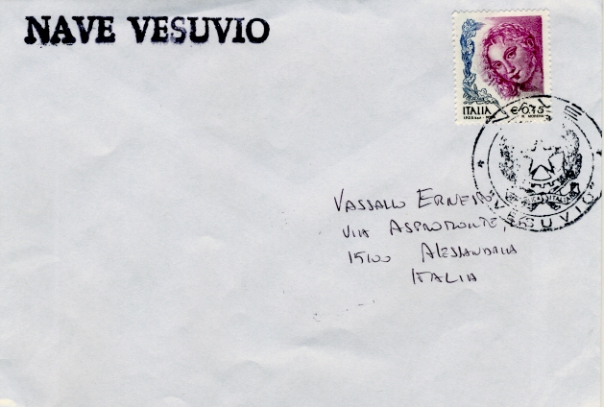 NAVE VESUVIO
ITALIA
€ 0,45
VASSALLO ERNESTO
VIA ASPROMONTE,
15100 ALESSANDRIA
ITALIA
NAVE
VESUVIO